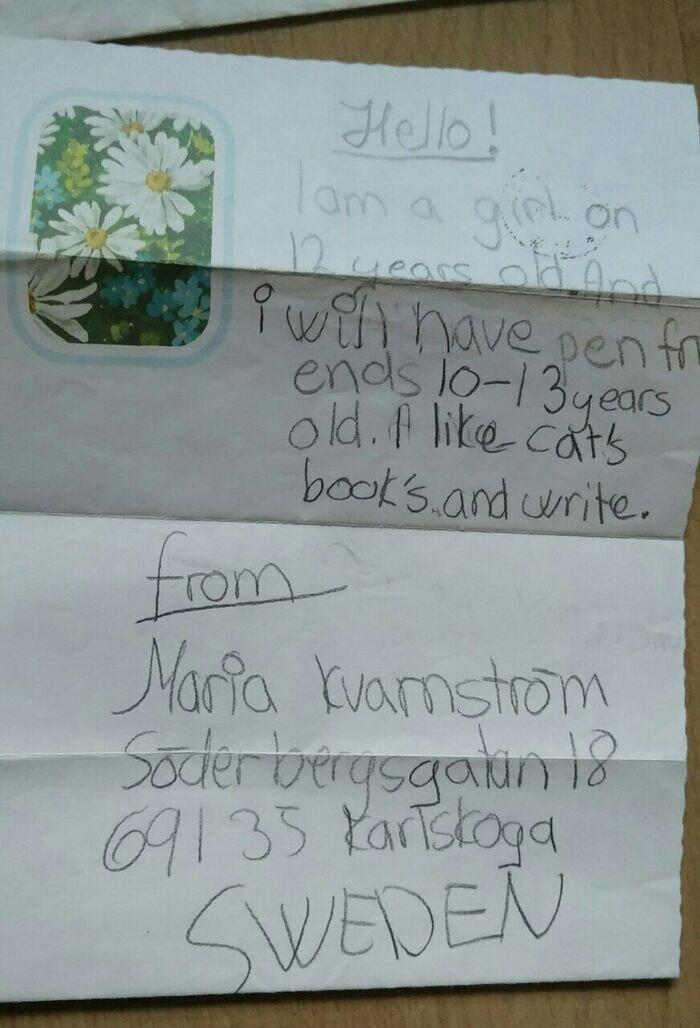 Hello!
I am a girl on
12 years old. And
i will have pen fri
ends 10-13 years
old. I like cat's
book's. and write.
from
Maria Kvarnström
Söderbergsgatan 18
691 35 Karlskoga
SWEDEN